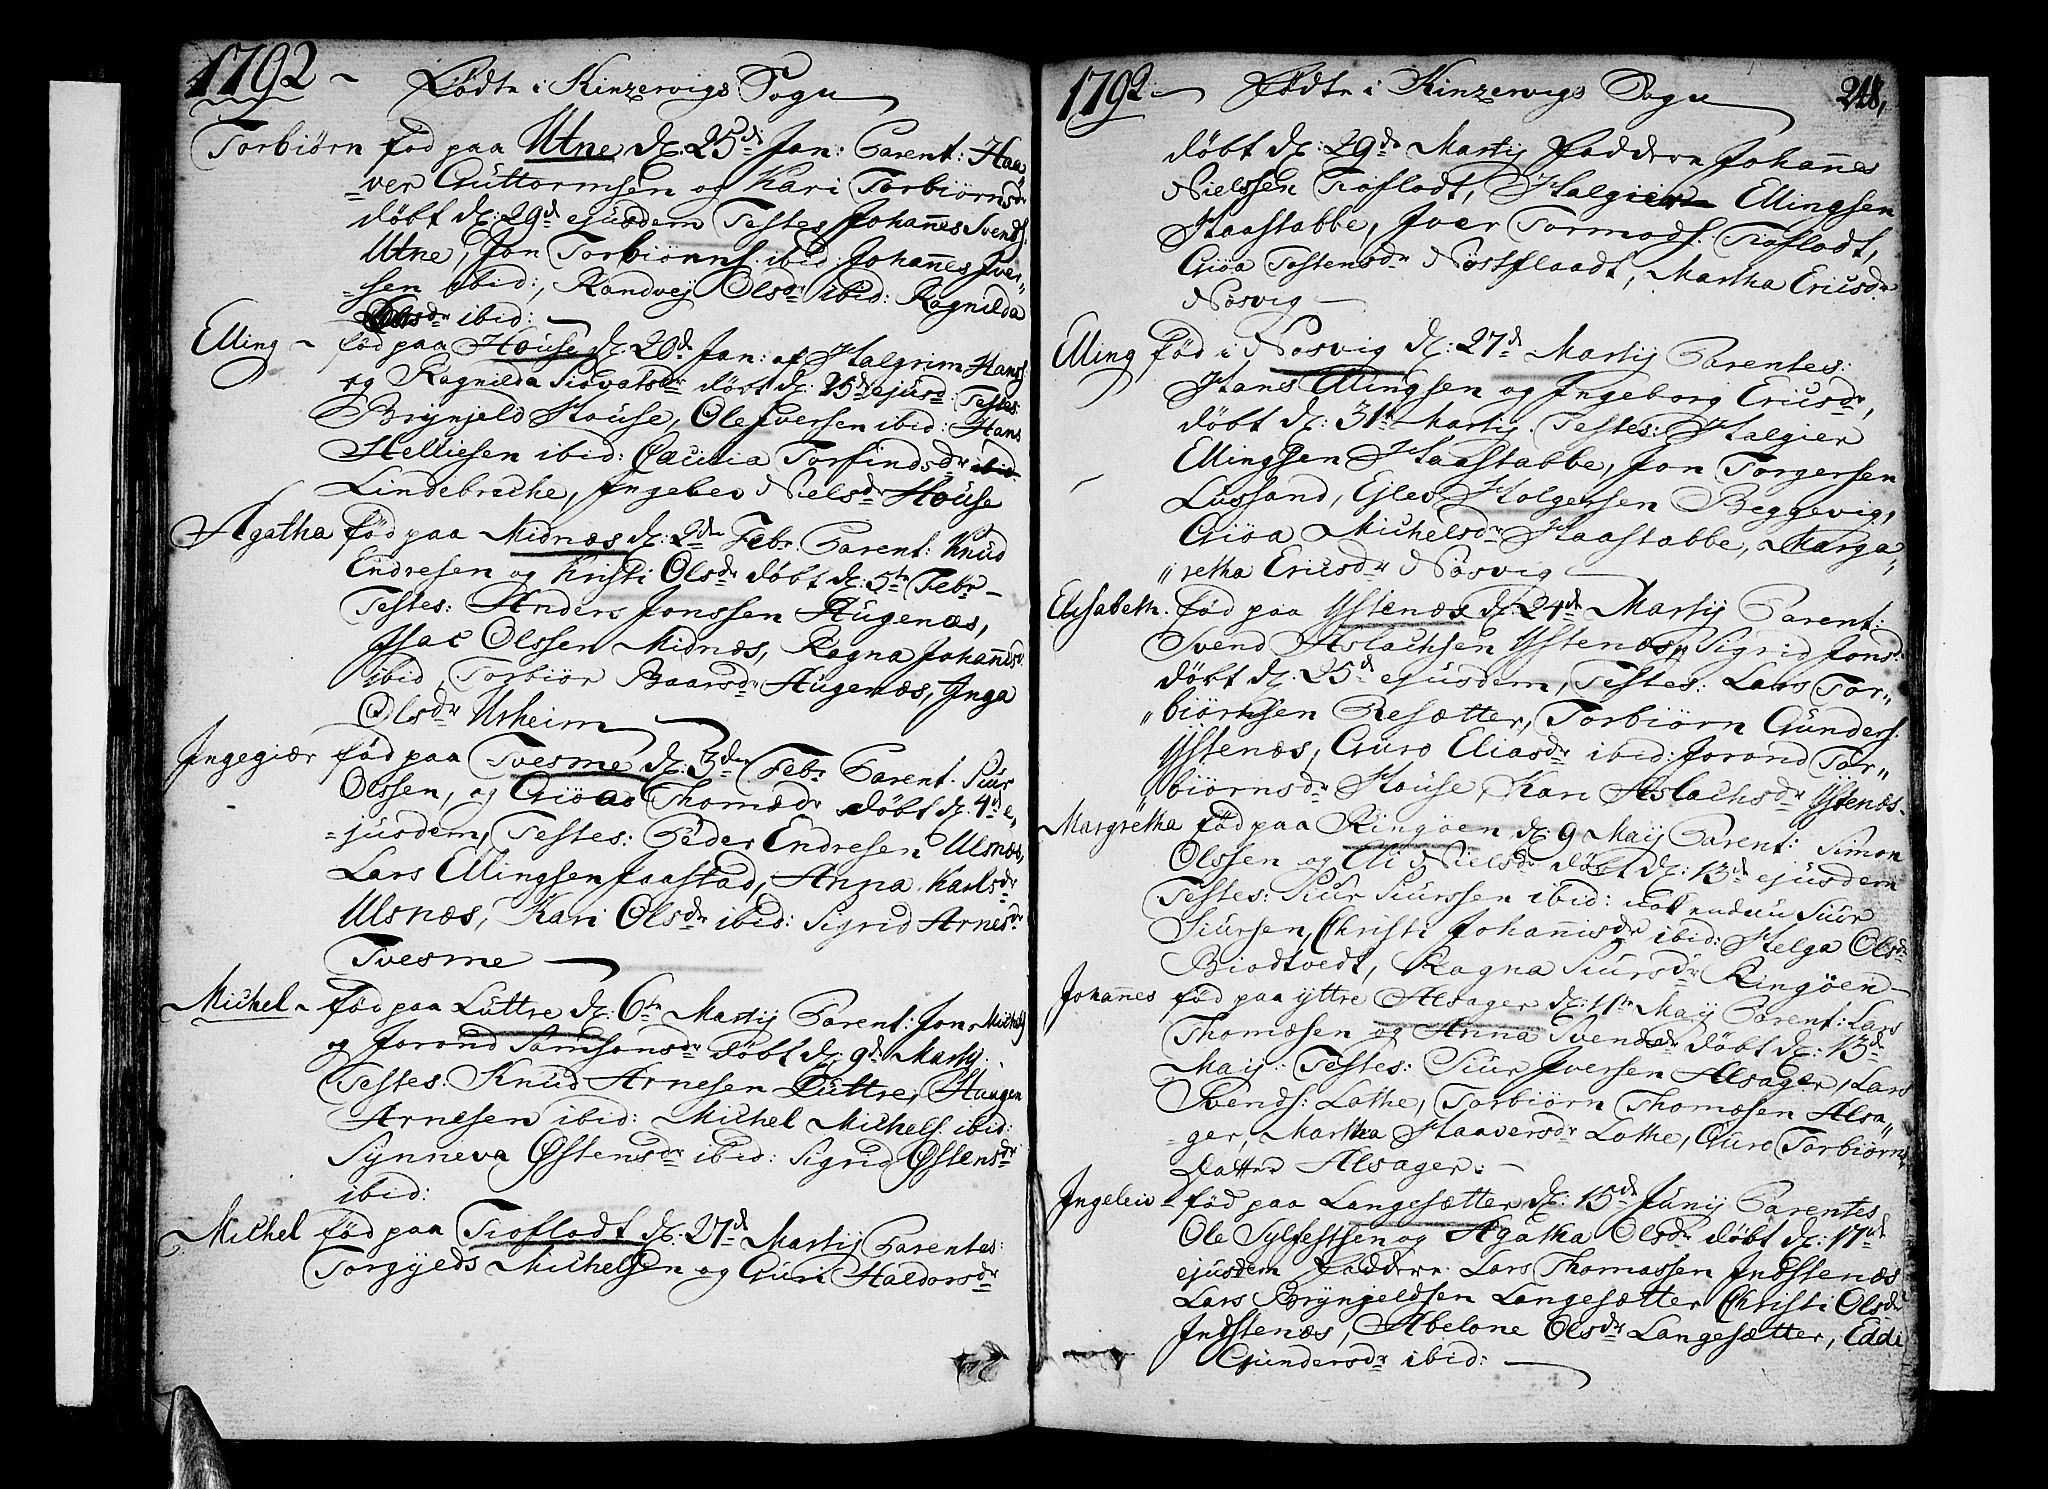 1792 Fødte i Kinzervigs Sogn
Torbiørn fød paa Utne d: 25de Jan: Parent: Haa
=ver Guttormsen og Kari Torbiørnsdr
døbt d: 29d ejusdem Testes Johannes Svends:
Utne, Jon Torbiørns: ibid: Johannes Iver-
=sen ibid:, Randvej Olsdr ibid: Ragnilda
ibid:
Elling - fød paa House d: 20d Jan: af Halgrim Hans:
og Ragnilda Siovatsdr døbt d: 25d ejusd: Testes:
Brynjeld House, Ole Iversen ibid: Hans
Helliesen ibid: Cæcilia Torfindsdr ibid
Lindebreche, Ingeber Nielsdr House
Agatha fød paa Midnæs d: 2de Febr. Parent: Knud
Endresen og Kristi Olsdr døbt d: 5te Febr
Testes: Anders Jonssen Augenæs,
Isac Olssen Midnæs, Ragna Johannisdr
ibid, Torbiør Baarsdr Augenæs, Inga
Olsdr Urheim
Ingegiær fød paa Tvesme d: 3de Febr Parent. Siur
Olssen, og Giøa Thomædr døbt d: 4d e,
=jusdem, Testes: Peder Endresen Ulsnæs,
Lars Ellingsen Jaastad, Anna Karlsdr
Ulsnæs, Kari Olsdr ibid: Sigrid Arnesdr
Tvesme
Michel - fød paa Lúttre d: 6te Martij Parent: Jon Michels:
og Jorond Samsonsdr døbt d: 9d Martij.
Testes: Knud Arnesen Lúttre, Haagen
Arnesen ibid: Michel Michels: ibid:
Synneva Østensdr ibid: Sigrid Østensdr
ibid:
Michel fød paa Tioflodt d: 27d Martij Parentes:
Torgyeds Michelsen og Guri Haldorsdr
1792 - Fødte i Kinzervigs Sogn 248,
døbt d: 29de Martij Faddere Johannes
Nielssen Tioflodt, Halgier Ellingsen
Haastabbe, Iver Tormods: Tioflodt,
Giøa Testensdr Nøstflaadt, Martha Ericsdr
Nosvig
Elling fød i Nosvig d: 27d Martij Parentes:
Hans Ellingsen og Ingeborg Ericsdr,
døbt d: 31te Martij. Testes: Halgier
Ellingsen Haastabbe, Jon Torgersen
Lussand, Ejlev Holgersen Beggevig,
Giøa Michelsdr Haastabbe, Marga
"retha Ericsdr Nosvig
Elisabeth. fød paa Ystenæs d: 24de Martij Parent:
Svend Aslachsen Ystenæs, Sigrid Jonsd:
døbt d: 25d ejusdem, Testes: Lars Tor"
"biørnsen Resætter, Torbiørn Gunders:
Ystenæs, Guro Eliasdr ibid: Jorond Tor"
biørnsdr House, Kari Aslachsdr Ystenæs-
Margretha fød paa Ringøen d: 9 Maij Parent: Simon
Olssen og Eli Nielsdr døbt d: 13de ejusdem
Testes: Siur Siurssen ibid: nok endnu Siur
Siursen, Christi Johannisdr ibid: Helga Olsdr
Biodtvedt, Ragna Siursdr Ringøen
Johannes fød paa yttre Alsager d: 11te Maij Parent: Lars
Thomæsen og Anna Svendsdr døbt d: 13de
Maij: Testes: Siur Iversen Alsager, Lars
Svends: Lothe, Torbiørn Thomæsen Alsa"
=ger, Martha Haaversdr Lothe, Guro Torbiørns
Datter Alsager.
Ingeleiv - fød paa Langesætter d: 15de Junij Parentes
Ole Sylfestsen og Agatha Olsdr døbt d: 17de
ejusdem Faddere. Lars Thomassen Indstenæs
Lars Bryngeldsen Langesætter Christi Olsdr
Indstenæs, Abelone Olsdr Langesætter, Edde
Gundersdr ibid: